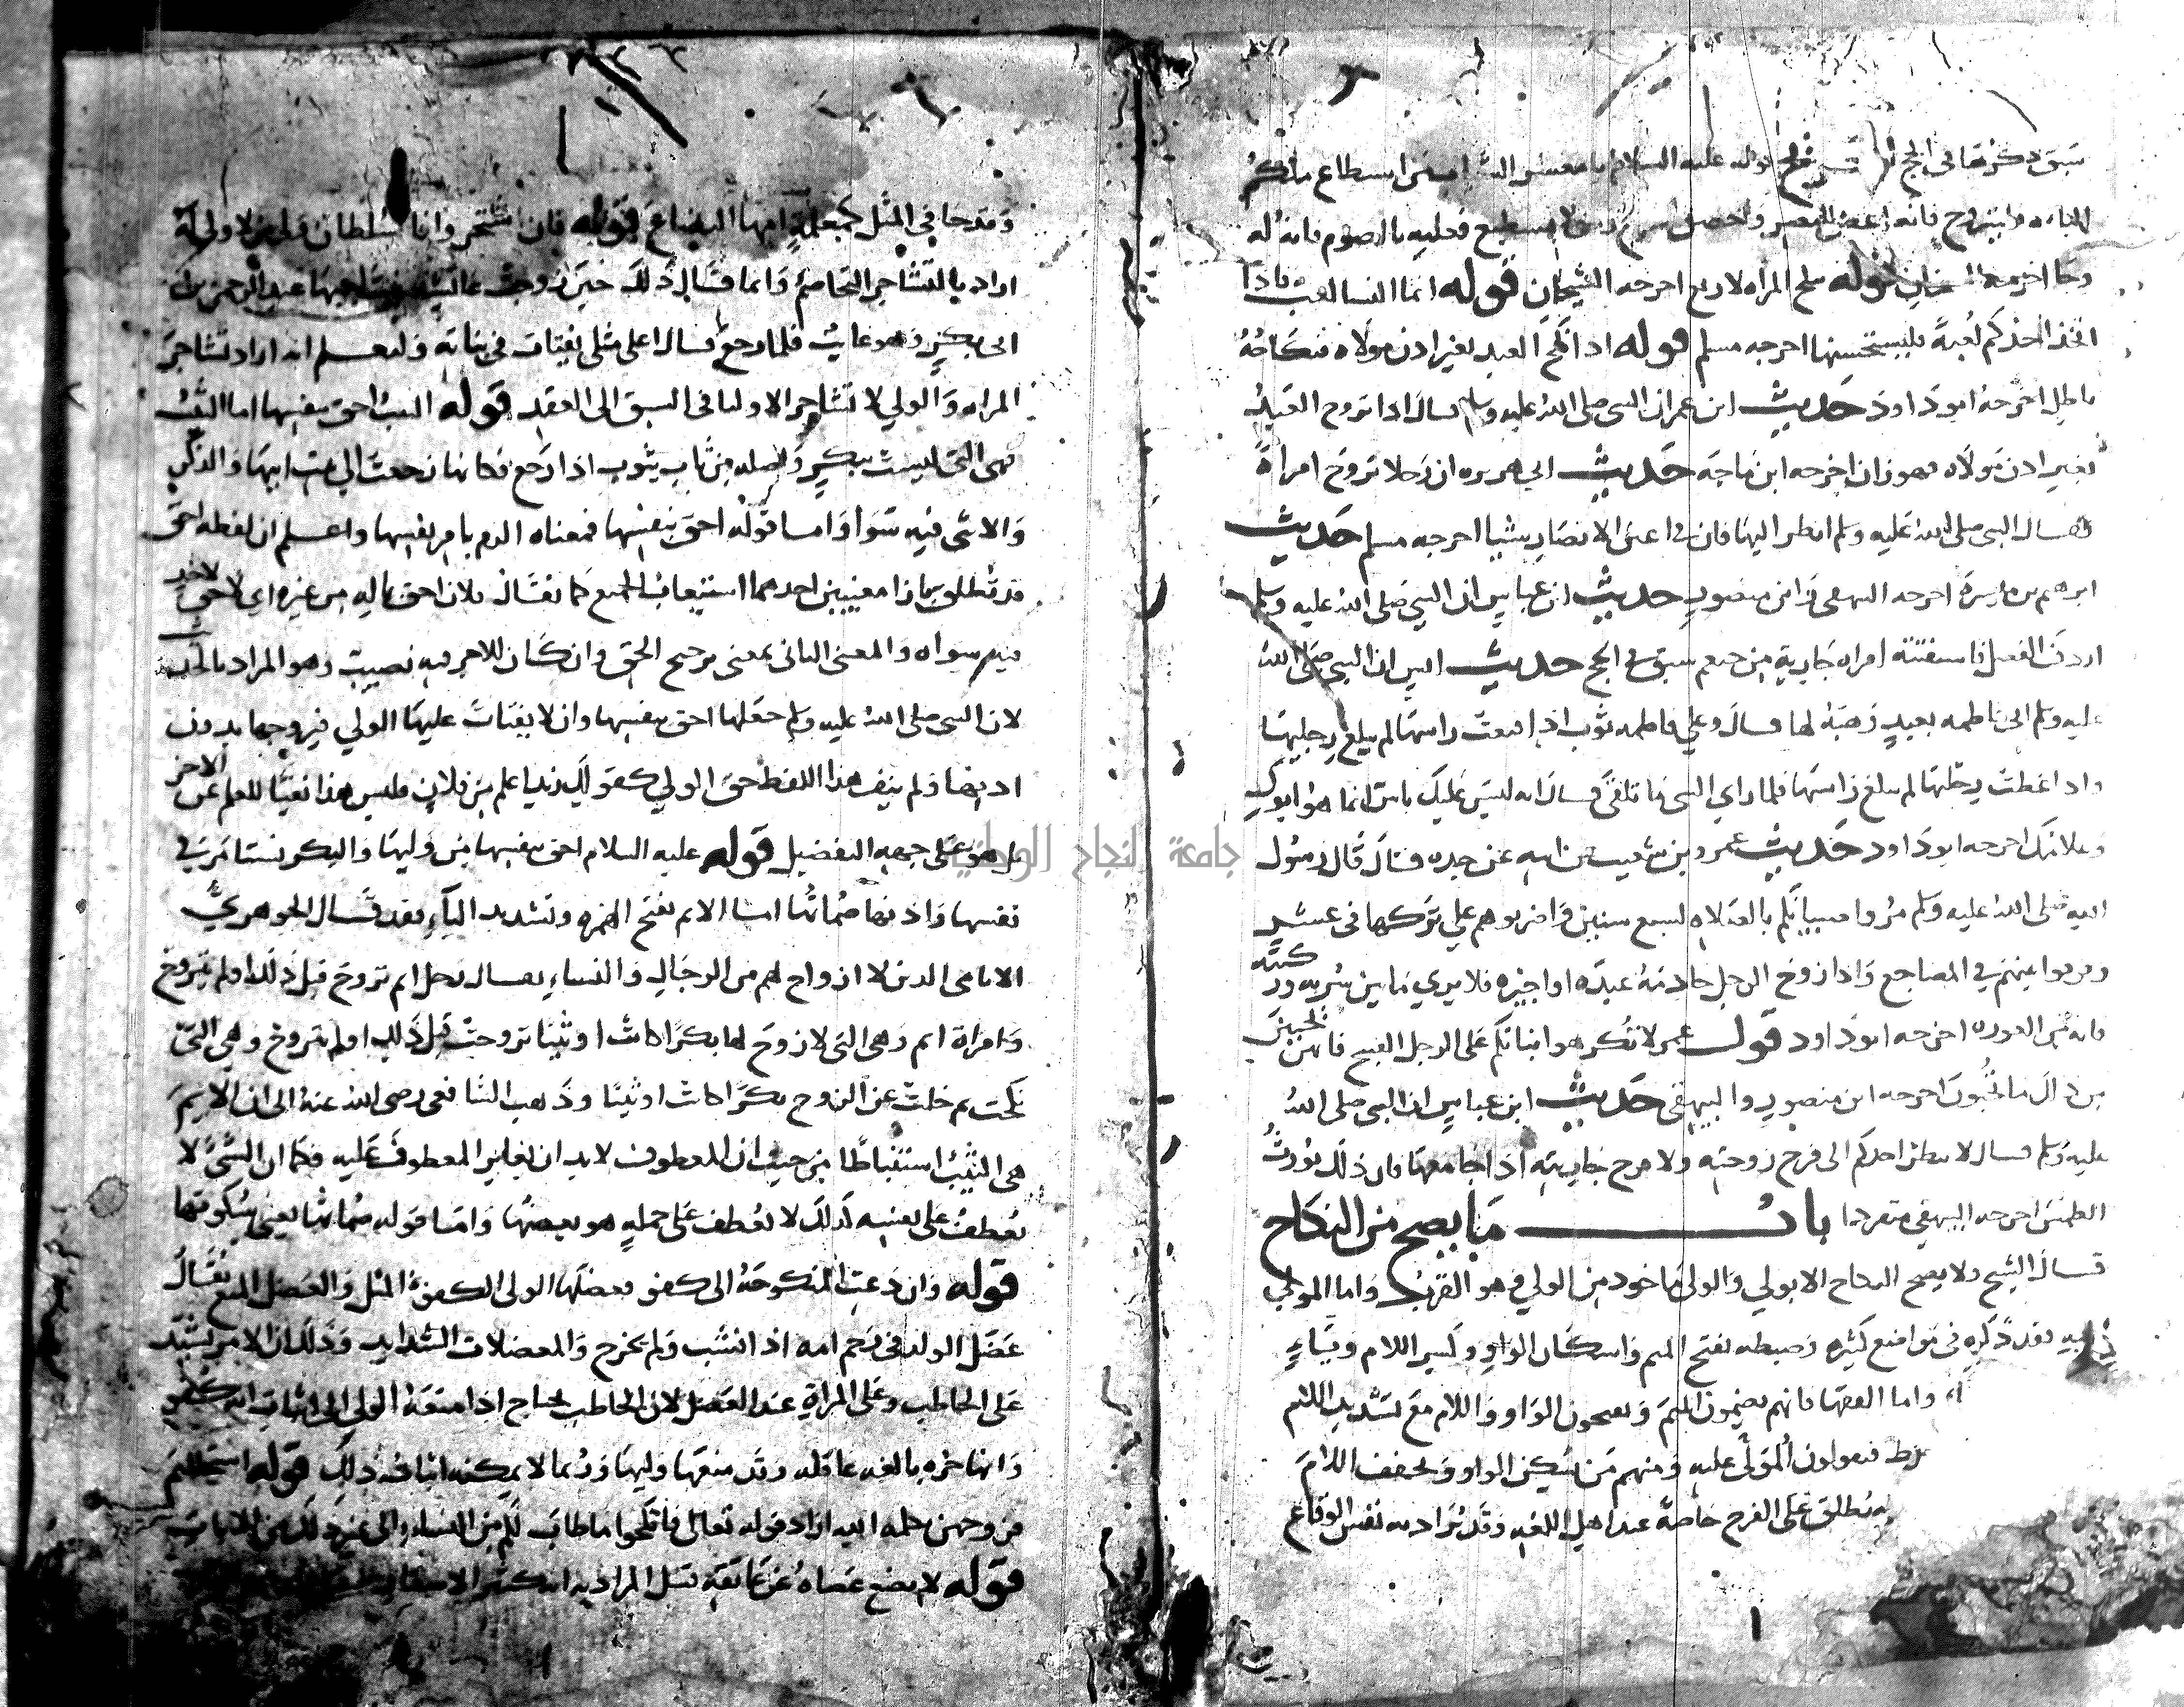 سبق ذكرها في الحج قوله عليه السلام يا معشر الشباب من استطاع منكم
الباءه فليتزوج فانه اغض للبصر واحصن للفرج ومن لم يستطع فعليه بالصوم فانه له
وجا اخرجه الشيخان قوله تنكح المراه لاربع اخرجه الشيخان قوله انما النسا لعب فاذا
اتخذ احدكم لعبة فليستحسنها اخرجه مسلم قوله اذا نكح العبد بغير اذن مولاه فنكاحه
باطل اخرجه ابو داود حديث ابن عمر ان النبي صلى الله عليه وسلم قال اذا تزوج العبد
بغير اذن مولاه فهو زان اخرجه ابن ماجه حديث ابي هريره ان رجلا تزوج امراة
فقال النبي صلى الله عليه وسلم انظر اليها فان في اعين الانصار شيا اخرجه مسلم حديث
ابرهيم بن ميسرة اخرجه البيهقي وابن منصور حديث ابن عباس ان النبي صلى الله عليه وسلم
اردف الفضل فاستفتته امراه جارية من خثعم سبق في الحج حديث انس ان النبي صلى الله
عليه وسلم اتى فاطمه بعبد وهبه لها قال وعلي فاطمه ثوب اذا قنعت راسها لم يبلغ رجليها
واذا غطت رجليها لم يبلغ راسها فلما راي النبي ما تلقى قال انه ليس عليك باس انما هو ابوك
وغلامك اخرجه ابو داود حديث عمرو بن شعيب عن ابيه عن جده قال قال رسول
الله صلى الله عليه وسلم مروا صبيانكم بالصلاه لسبع سنين واضربوهم علي تركها في عشر
وفرقوا بينهم في المضاجع واذا زوج الرجل خادمه عبده او اجيره فلا يري ما بين سرته وركبته
فانه من العوره اخرجه ابو داود قول عمر لا تكرهوا بناتكم على الرجل القبيح فانهن يحببن
من ذاك ما تحبون اخرجه ابن منصور والبيهقي حديث ابن عباس ان النبي صلى الله
عليه وسلم قال لا ينظر احدكم الى فرج زوجته ولا فرج جاريته اذا جامعها فان ذلك يورث
الطمس اخرجه البيهقي متفردا باب ما يصح من النكاح
قال الشيخ ولا يصح النكاح الا بولي والولي ماخوذ من الولي وهو القرب واما المولي
فقد ذكره في مواضع كثيره وضبطه بفتح الميم واسكان الواو وكسر اللام وياء
واما الفقها فانهم يضمون الميم ويفتحون الواو واللام مع تشديد اللام
فيقولون المولى عليه ومنهم من يسكن الواو ويخفف اللام
يطلق على الفرج خاصة عند اهل اللغه وقد يراد به نفس الوقاع
وقدحا في المثل كمعلمة امها البضاع قوله فان اشتجروا فالسلطان ولي من لا ولي له
اراد بالتشاجر التخاصم وانما قال ذلك حين زوجت عائشة عبد الرحمن بن
ابي بكر وهو غايب فلما رجع قال اعلى مثلي يفتات في بناته وليعلم انه اراد تشاجر
المراه والولي لا تشاجر الاوليا في السبق الى العقد قوله الثيب احق بنفسها اما الثيب
فهي التي ليست ببكر واصله من ثاب يثوب اذا رجع فكانها رجعت الي بيت ابيها والذكر
والانثى فيه سوا واما قوله احق بنفسها فمعناه انه يامر بنفسها واعلم ان لفظه احق
قد تطلق بازا معنيين احدهما استيعاب الجميع كما يقال فلان احق بماله من غيره اي لا حق لاحد
فيه سواه والمعنى الثاني بمعنى ترجيح الحق وان كان للاخر فيه نصيب وهو المراد بالحديث
لان النبي صلى الله عليه وسلم جعلها احق بنفسها وان لا يفتات عليها الولي فيزوجها بدون
اذنها ولم ينف هذا اللفظ حق الولي كقولك زيد اعلم من فلان فليس هذا نفيا للعلم عن الاخر
بل هو على جهه التفضيل قوله عليه السلام احق بنفسها من وليها والبكر تستامر في
نفسها واذنها صماتها اما الايم بفتح الهمزه وتشديد الياء فقد قال الجوهري
الايامى الذين لا ازواج لهم من الرجال والنساء يقال رجل ايم تزوج قبل ذلك او لم يتزوج
وامراة ايم وهي التي لا زوج لها بكرا كانت او ثيبا تزوجت قبل ذلك او لم تتزوج وهي التي
نكحت ثم خلت عن الزوج بكرا كانت او ثيبا وذهب الشافعي رضي الله عنه الى ان الايم
هي الثيب استنباطا من حيث ان المعطوف لابد ان يغاير المعطوف عليه فكما ان الشيء لا
يعطف على نفسه كذلك لا يعطف على جمله هو بعضها واما قوله صماتها يعني سكوتها
قوله وان دعت المنكوحة الى كفو فعضلها الولي الكفو المثل والعضل المنع يقال
عضل الولد في رحم امه اذا انشب ولم يخرج والمعضلات الشدايد وذلك ان الامر يشتد
على الخاطب وعلى المراة عند العضل لان الخاطب يحتاج اذا منعه الولي الى اثبات انه كفو
وانها حره بالغه عاقله وقد منعها وليها وربما لا يمكنه اثبات ذلك قوله استحللتم
فروجهن بكلمه الله اراد قوله تعالى فانكحوا ما طاب لكم من النساء الى غير ذلك من الايات
قوله لا يضع عصاه عن عاتقه قيل المراد به انه كثير الاسفار